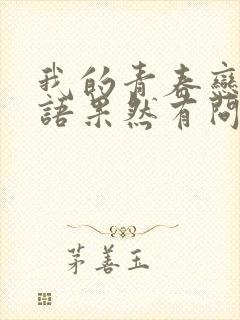 我的青春戀
語果然有問
茅善玉